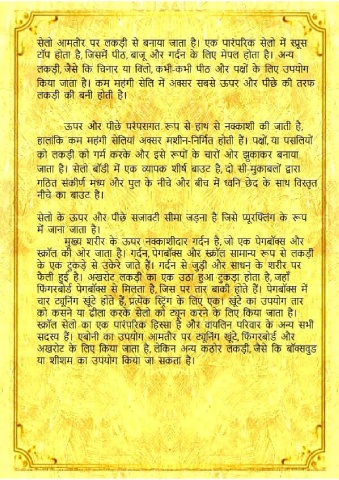 सेलो आमतौर पर लकड़ी से बनाया जाता है। एक पारंपरिक सेलो में स्प्रूस
टॉप होता है, जिसमें पीठ, बाजू और गर्दन के लिए मेपल होता है। अन्य
लकड़ी, जैसे कि चिनार या विलो, कभी-कभी पीठ और पक्षों के लिए उपयोग
किया जाता है। कम महंगी सेलि में अक्सर सबसे ऊपर और पीछे की तरफ
लकड़ी की बनी होती है।
ऊपर और पीछे परंपरागत रूप से हाथ से नक्काशी की जाती है,
हालांकि कम महंगी सेलियां अक्सर मशीन-निर्मित होती हैं। पक्षों, या पसलियों
को लकड़ी को गर्म करके और इसे रूपों के चारों ओर झुकाकर बनाया
जाता है। सेलो बॉडी में एक व्यापक शीर्ष बाउट है, दो सी-मुकाबलों द्वारा
गठित संकीर्ण मध्य और पुल के नीचे और बीच में ध्वनि छेद के साथ विस्तृत
नीचे का बाउट है।
सेलो के ऊपर और पीछे सजावटी सीमा जड़ना है जिसे प्यूरफ्लिंग के रूप
में जाना जाता है।
मुख्य शरीर के ऊपर नक्काशीदार गर्दन है, जो एक पेगबॉक्स और
स्क्रॉल की ओर जाता है। गर्दन, पेगबॉक्स और स्क्रॉल सामान्य रूप से लकड़ी
के एक टुकड़े से उकेरे जाते हैं। गर्दन से जुड़ी और साधन के शरीर पर
फैली हुई है। अखरोट लकड़ी का एक उठा हुआ टुकड़ा होता है, जहाँ
फिंगरबोर्ड पेगबॉक्स से मिलता है, जिस पर तार बाकी होते हैं। पेगबॉक्स में
चार ट्यूनिंग खूंटे होते हैं, प्रत्येक स्ट्रिंग के लिए एक। खूंटे का उपयोग तार
को कसने या ढीला करके सेलो को ट्यून करने के लिए किया जाता है।
स्क्रॉल सेलो का एक पारंपरिक हिस्सा है और वायलिन परिवार के अन्य सभी
सदस्य हैं। एबोनी का उपयोग आमतौर पर ट्यूनिंग खूंटे, फिंगरबोर्ड और
अखरोट के लिए किया जाता है, लेकिन अन्य कठोर लकड़ी, जैसे कि बॉक्सवुड
या शीशम का उपयोग किया जा सकता है।